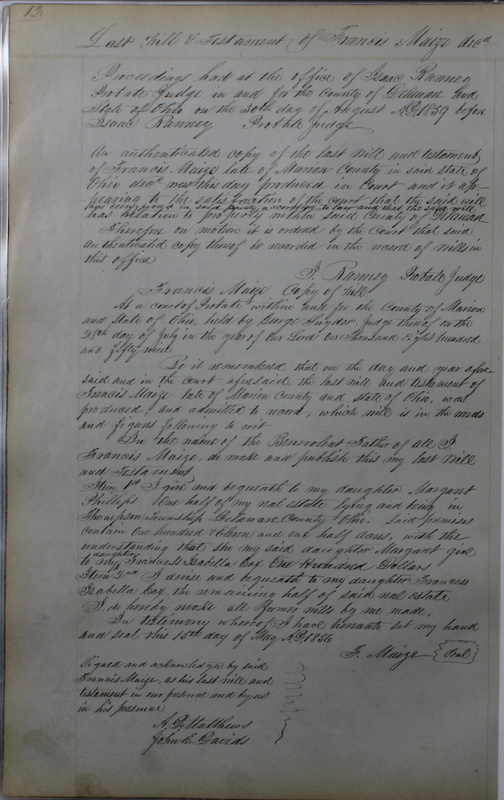 13
Last Will & Testament of Francis Maize decd
Proceedings had at the office of Isaac Ranney
Probate Judge in and for the County of Delaware and
State of Ohio on the 30th day of August AD 1859 before
Isaac Ranney Probate Judge
An authenticated copy of the last will and testament
of Francis Maize late of Marion County in said State of
Ohio decd was this day produced in Court and it ap-
pearing to the satisfaction of the court that the said will
has been proved in said County according to law and that the said will
has relation to property within said County of Delaware
Therefore on motion it is ordered by the Court that said
authenticated copy thereof be recorded in the record of wills in
this office
I. Ranney Probate Judge
Francis Maize Copy of Will
At a court of Probate within and for the County of Marion
and State of Ohio, held by George Snyder Judge thereof on the
28th day of July in the year of our Lord one thousand Eight hundred
and fifty nine
Be it remembered that on the day and year afore-
said and in the court aforesaid the last will and testament of
Francis Maize late of Marion County and State of Ohio, was
produced and admitted to record, which will is in the words
and figures following to wit
In the name of the Benevolent Father of all I
Francis Maize, do make and publish this my last Will
and Testament
Item 1st I give and bequeath to my daughter Margaret
Phillips One half of my real estate lying and being in
Thompson Township Delaware County Ohio. Said premises
contain One hundred & eleven and one half acres, with the
understanding that she my said daughter Margaret give
daughter
to my Francess Isabella Cay One Hundred Dollars
Item 2nd I devise and bequeath to my daughter Francess
Isabella Cay, the remaining half of said real estate
I do hereby revoke all former wills by me made.
In testimony whereof I have hereunto set my hand
and seal this 15th day of May AD 1856
F. Maize {Seal}
Signed and acknowledged by said
Francis Maize, as his last will and
testament in our presence and by us
in his presence
A. D. Matthews
John E. Davids